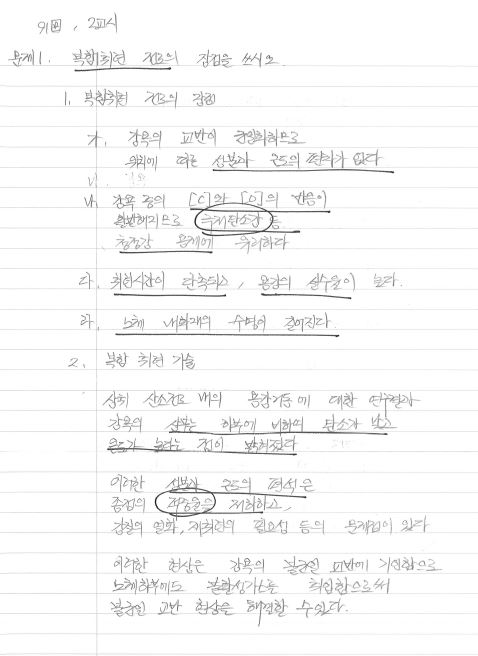 91회, 2교시
문제1. 복합취련 전로의 장점을 쓰시오.
1. 복합취련 전로의 장점
가. 강욕의 교반이 균일화하므로
위치에 따른 성분과 온도의 편차가 없다
나. 강욕 중의 [C]와 [O]의 반응이
활발해지므로 극저탄소강 등
청정강 용제에 유리하다
다. 취련시간이 단축되고, 용강의 실수율이 높다.
라. 노체 내화재의 수명이 길어진다.
2. 복합 취련 기술
상취 산소전로 내의 용강거동에 대한 연구결과
강욕의 상부는 하부에 비하여 탄소가 낮고
온도가 높다는 점이 밝혀졌다
이러한 성분과 온도의 편석은
종점의 적중율을 저하하고,
강질의 열화, 재취련의 필요성 등의 문제점이 있다
이러한 현상은 강욕의 불균일 교반에 기인함으로
노체하부에도 불활성가스를 취입함으로써
불균일 교반 현상을 해결할 수 있다.